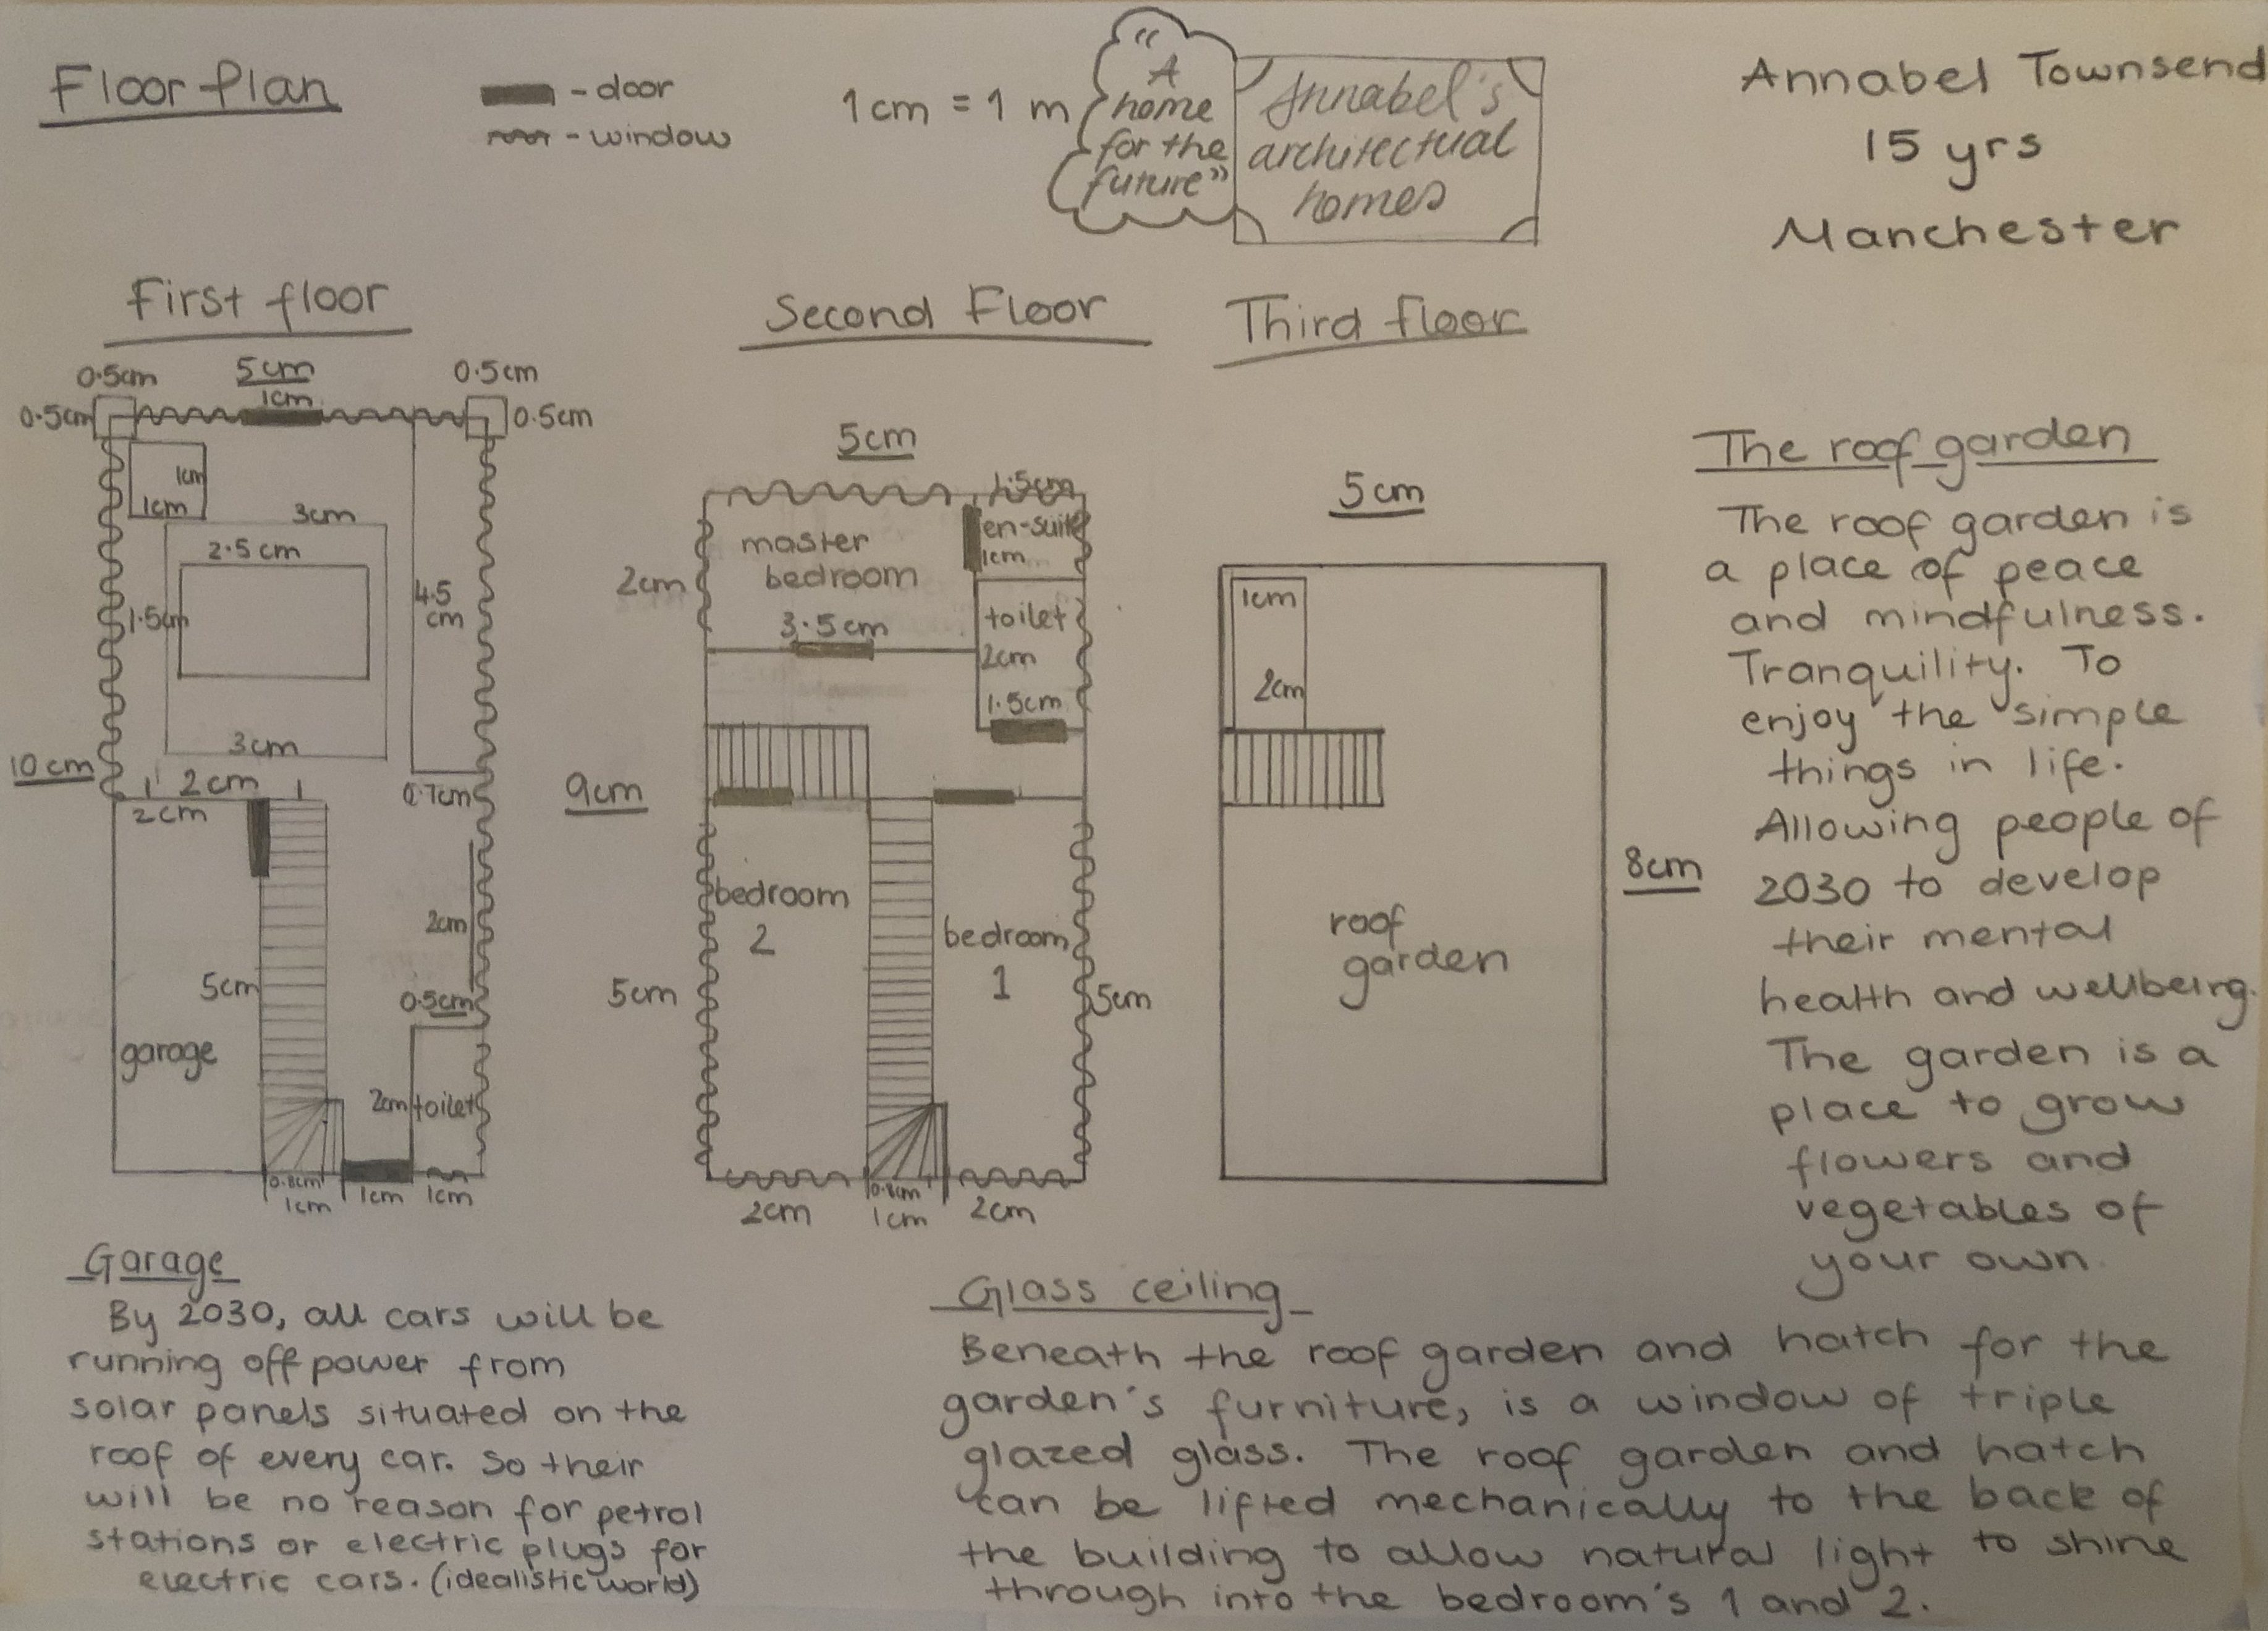 Floor Plan
- door
- window
1cm = 1 m
"A
home
for the
future"
Annabel's
architectual
homes
Annabel Townsend
15 yrs
Manchester
First floor
0.5cm
5cm
0.5cm
0.5cm
1cm
0.5cm
1cm
1cm
3cm
2.5cm
1.5cm
4.5
cm
3cm
10cm
2cm
2cm
0.7cm
2cm
5cm
0.5cm
garage
2cm
toilet
0.8cm
1cm
1cm
1cm
Second Floor
5cm
1.5cm
master
bedroom
en-suite
1cm
2cm
3.5cm
toilet
2cm
1.5cm
9cm
bedroom
2
bedroom
1
5cm
5cm
2cm
0.8cm
1cm
2cm
Third floor
5cm
1cm
2cm
8cm
roof
garden
The roof garden
The roof garden is
a place of peace
and mindfulness.
Tranquility. To
enjoy the simple
things in life.
Allowing people of
2030 to develop
their mental
health and wellbeing.
The garden is a
place to grow
flowers and
vegetables of
your own.
Garage
By 2030, all cars will be
running off power from
solar panels situated on the
roof of every car. So their
will be no reason for petrol
stations or electric plugs for
electric cars. (idealistic world)
Glass ceiling
Beneath the roof garden and hatch for the
garden's furniture, is a window of triple
glazed glass. The roof garden and hatch
can be lifted mechanically to the back of
the building to allow natural light to shine
through into the bedroom's 1 and 2.